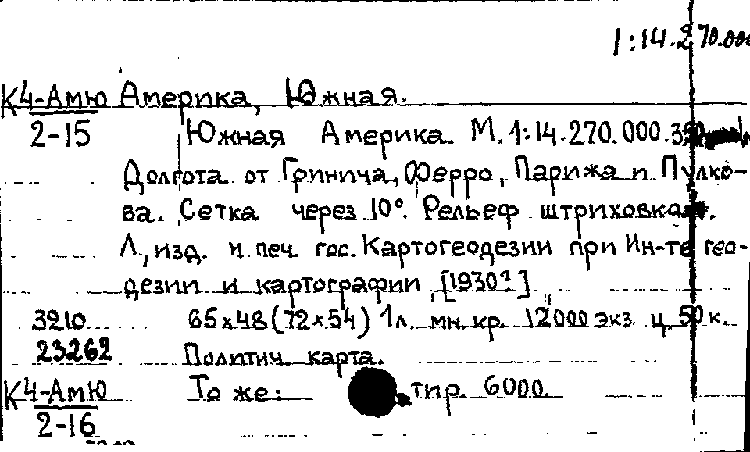 1:14.270.000
К4-Амю Америка, Южная.
2-15 Южная Америка. М. 1:14.270.000.
Долгота от Гринича, Ферро, Парижа и Пулко-
ва. Сетка через 10°. Рельеф штриховка.
Л., изд. и печ. гос. Картогеодезии при Ин-те гео-
дезии и картографии, [1930?]
3210 65х48 (72х54) 1л. мн. кр. 12000 экз. ц. 50 к.
23262 Политич. карта.
К4-Амю То же: тир. 6000.
2-16